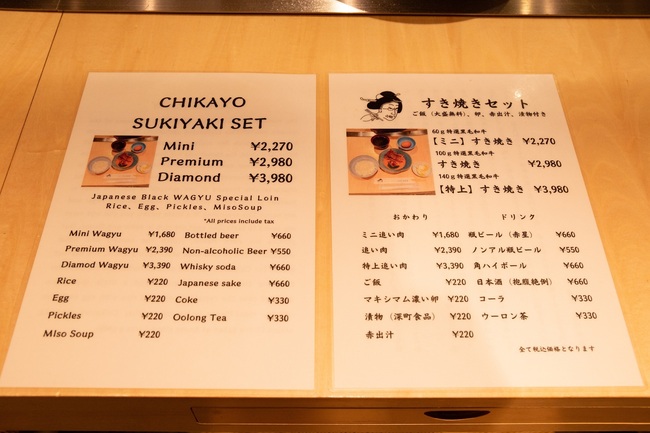 CHIKAYO
SUKIYAKI SET
Mini ¥2,270
Premium ¥2,980
Diamond ¥3,980
Japanese Black WAGYU Special Loin
Rice、Egg、Pickles、MisoSoup
*All prices include tax
Mini Wagyu ¥1,680 Bottled beer ¥660
Premium Wagyu ¥2,390 Non-alcoholic Beer ¥550
Diamod Wagyu ¥3,390 Whisky soda ¥660
Rice ¥220 Japanese sake ¥660
Egg ¥220 Coke ¥330
Pickles ¥220 Oolong Tea ¥330
MIso Soup ¥220
すき焼きセット
ご飯（大盛無料）、卵、赤出汁、漬物付き
60g特選黒毛和牛
【ミニ】すき焼き ¥2,270
100g特選黒毛和牛
すき焼き ¥2,980
140g特選黒毛和牛
【特上】すき焼き ¥3,980
おかわり ドリンク
ミニ追い肉 ¥1,680 瓶ビール（赤星） ¥660
追い肉 ¥2,390 ノンアル瓶ビール ¥550
特上追い肉 ¥3,390 角ハイボール ¥660
ご飯 ¥220 日本酒（抱腹絶倒） ¥660
マキシマム濃い卵 ¥220 コーラ ¥330
漬物（深町食品） ¥220 ウーロン茶 ¥330
赤出汁 ¥220
全て税込価格となります